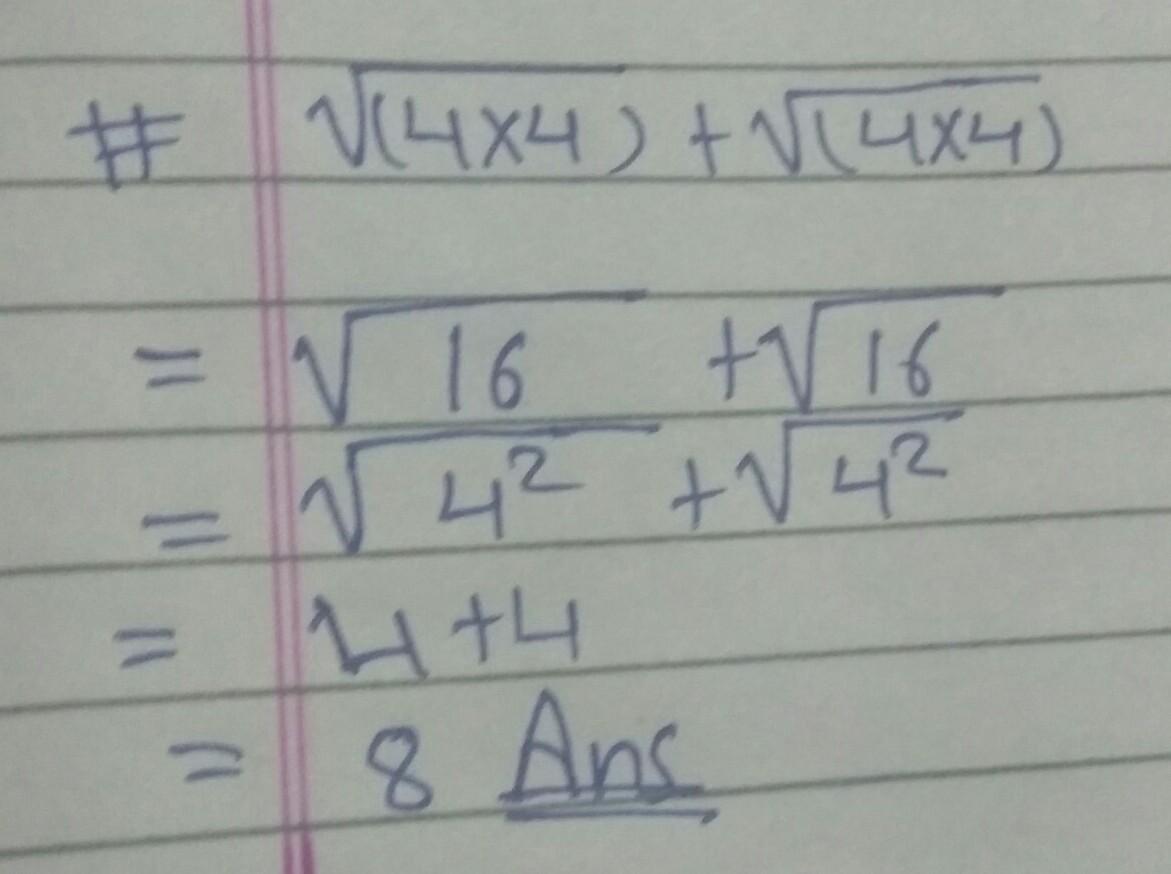 # √(4×4) + √(4×4)
= √16 + √16
= √4² + √4²
= 4 + 4
= 8 Ans